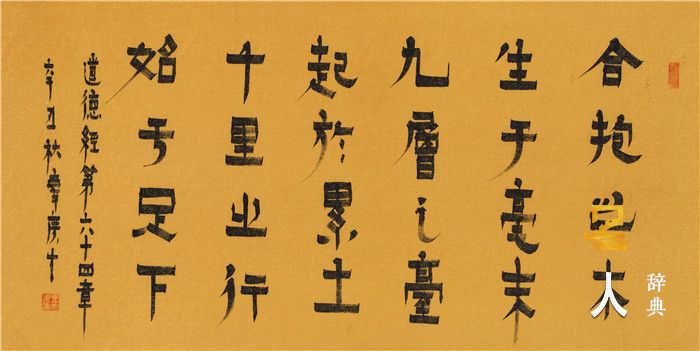 合抱之木
生于毫末
九層之臺
起於累土
千里之行
始于足下
道德經第六十四章
辛丑秋
辞典